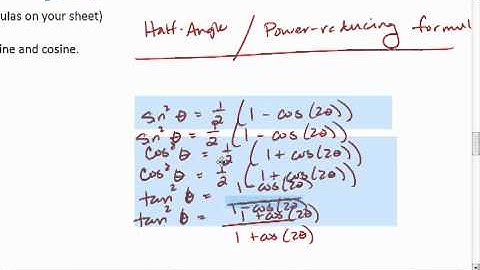 ulas on your sheet)
Half-Angle / Power-reducing formul
ine and cosine.
sin² θ = 1/2 (1 - cos(2θ))
sin² θ = 1/2 (1 - cos(2θ))
cos² θ = 1/2 (1 + cos(2θ))
cos² θ = 1/2 (1 + cos(2θ))
tan² θ = 1 - cos(2θ)
1 - cos(2θ)
tan² θ = 1 + cos(2θ)
1 + cos(2θ)